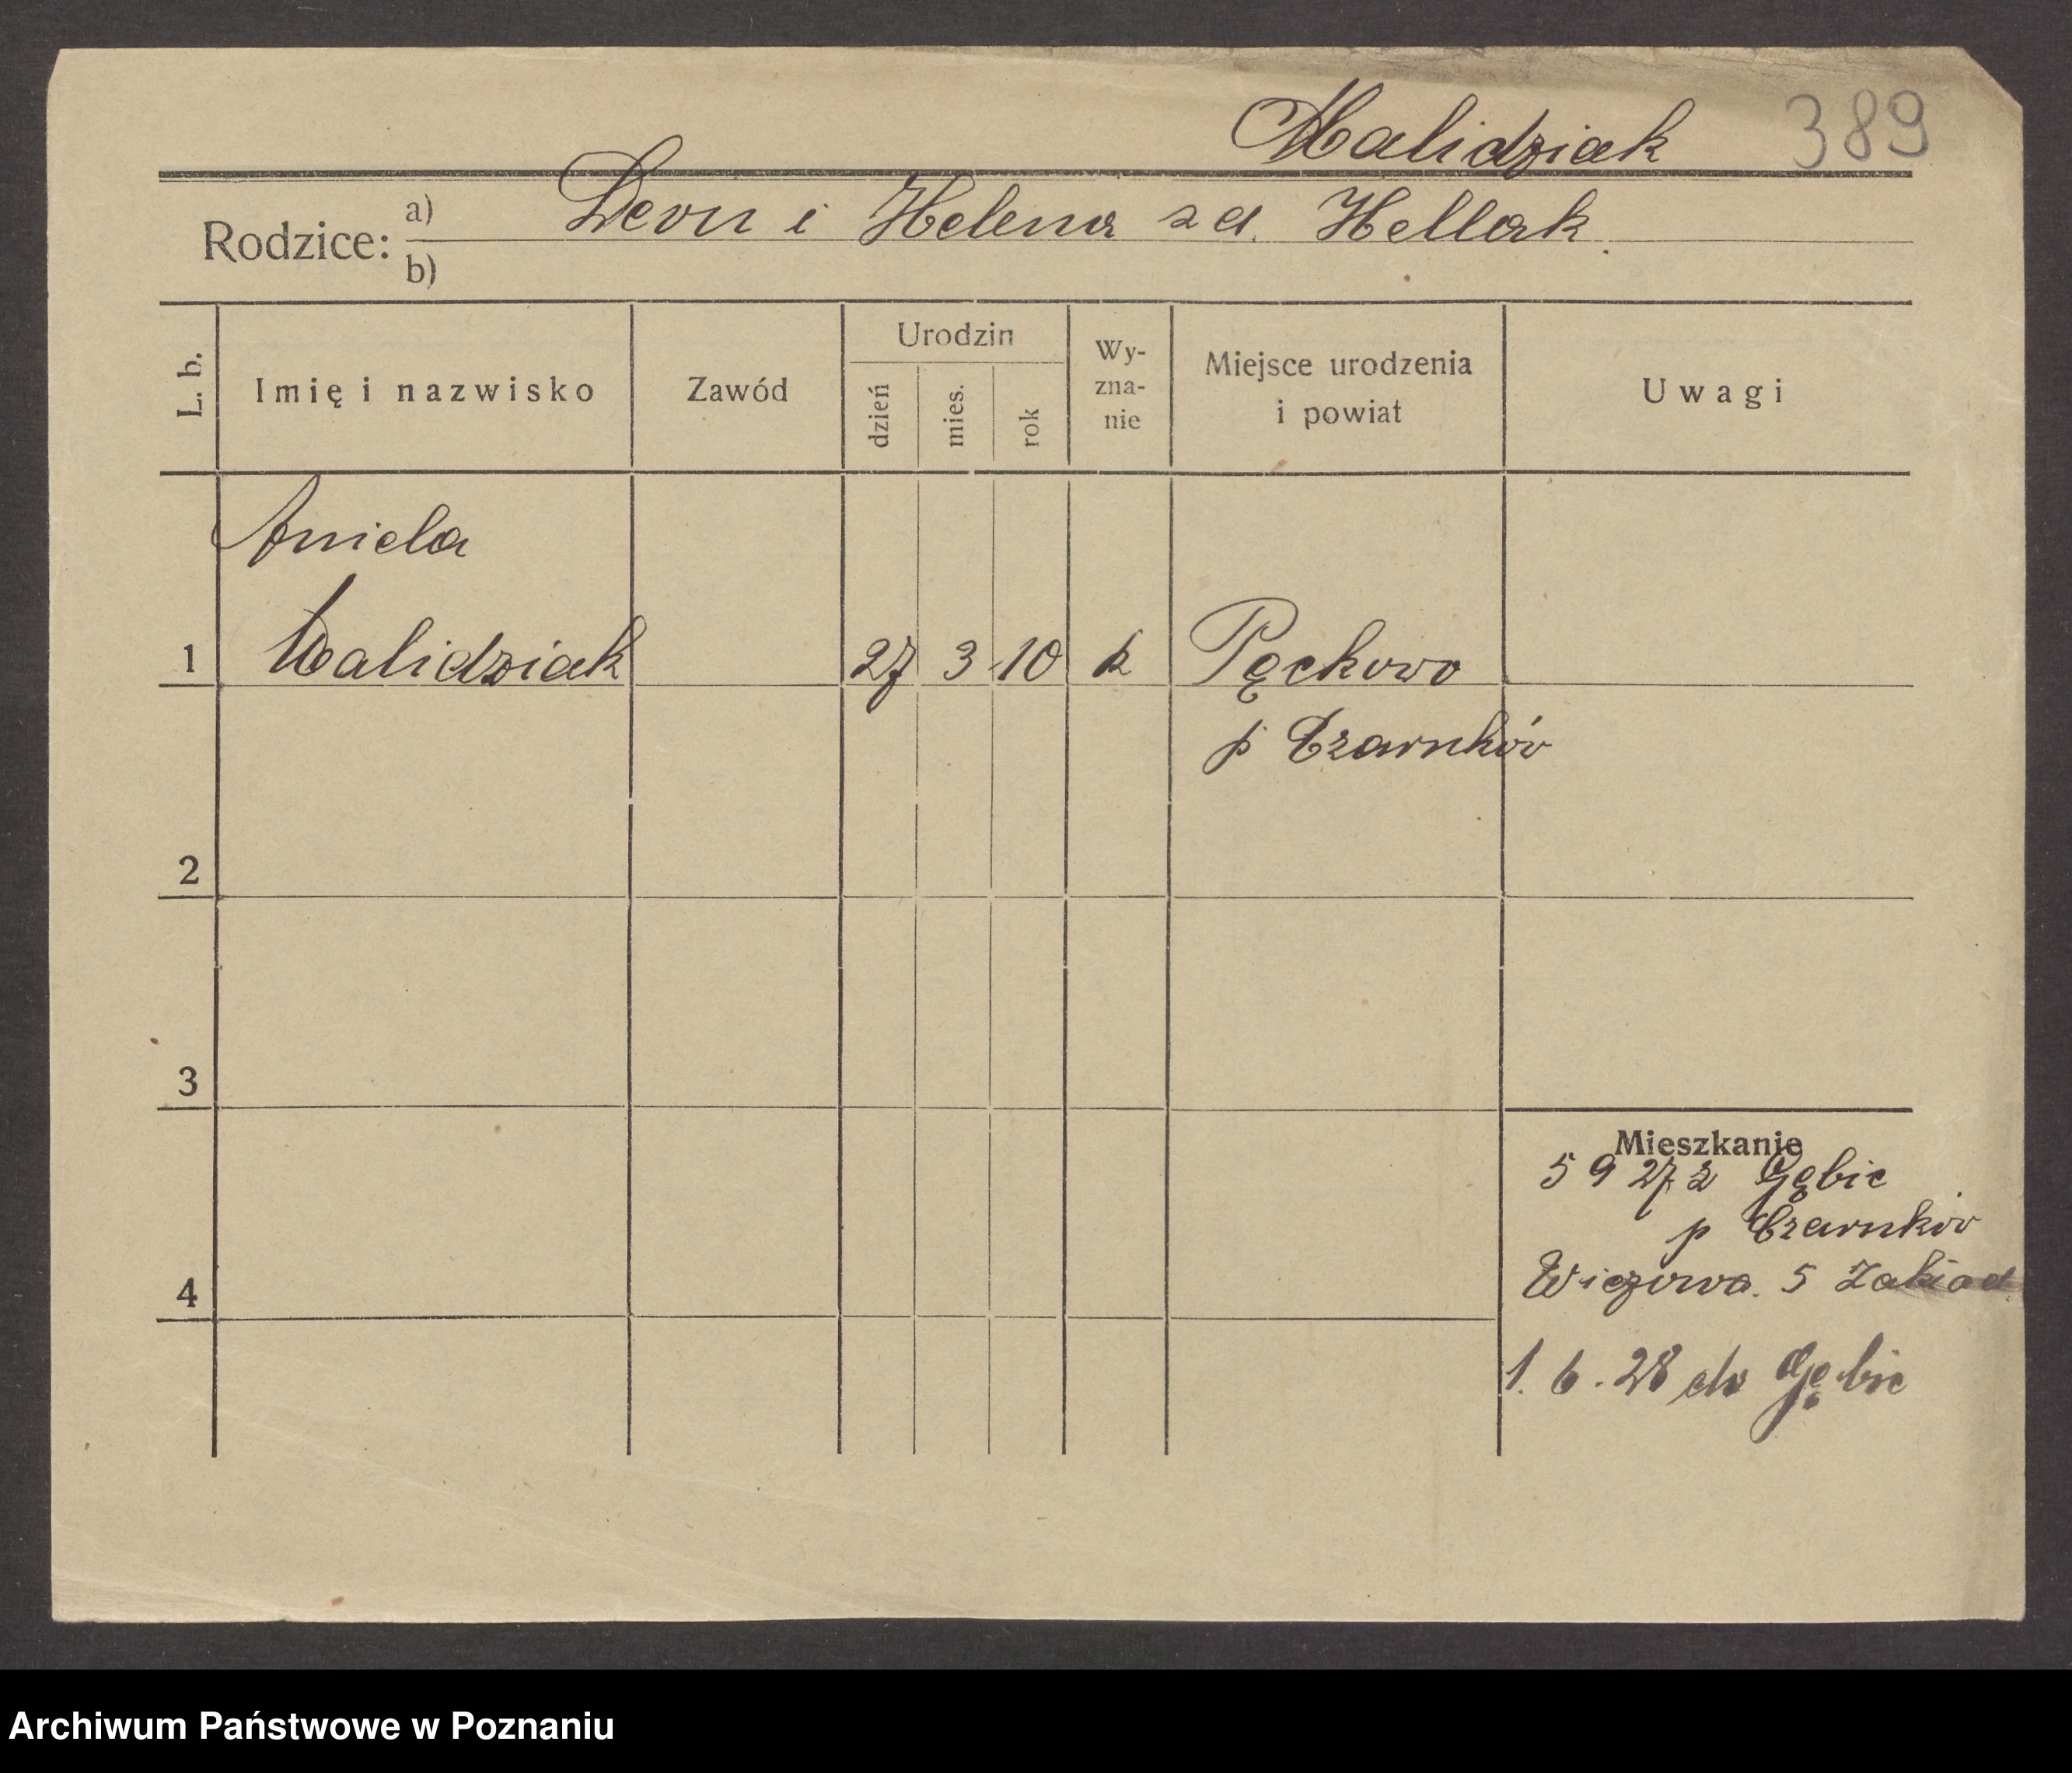 Malidziak 389
Rodzice: a) Leon i Helena z d. Hellak.
b)
L. b.
Imię i nazwisko
Zawód
Urodzin
dzień
mies.
rok
Wy-
zna-
nie
Miejsce urodzenia
i powiat
Uwagi
Aniela
1 Malidziak 27 3 10 k Pęckowo
p Czarnków
2
3
Mieszkanie
5 9 27 z Gębic
p Czarnków
4
5 Zakład
1. 6. 28 do Gębic
Archiwum Państwowe w Poznaniu